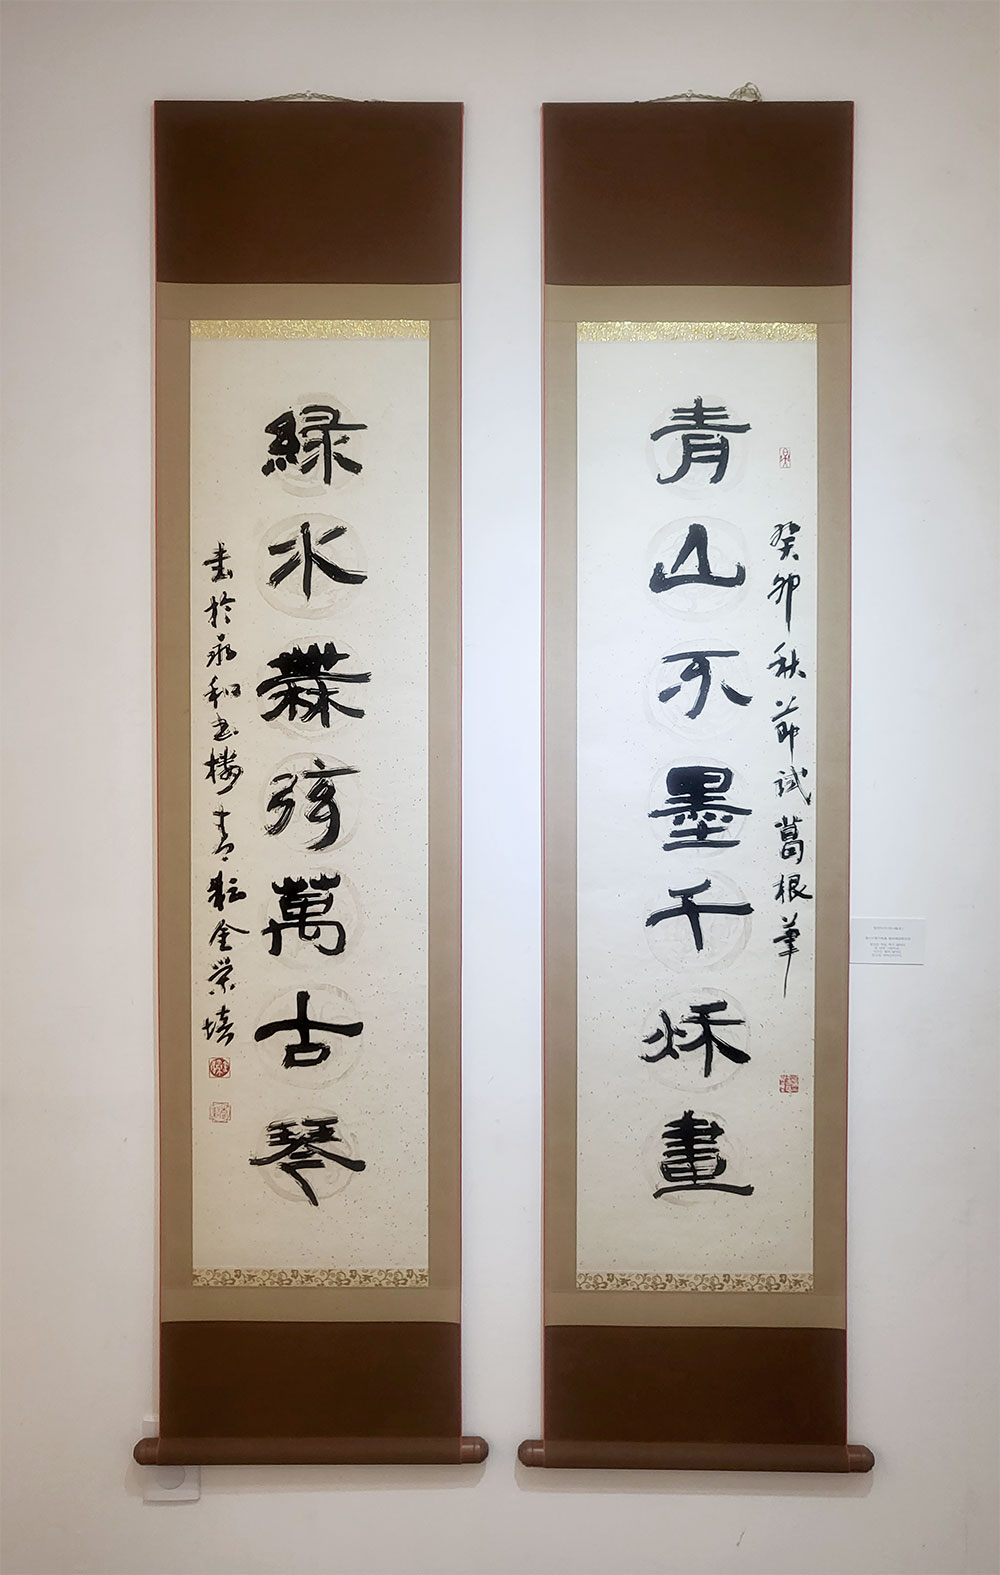 癸卯秋節試葛根筆
青山不墨千秌畫
綠水無弦萬古琴
書於和書樓青耘金榮培